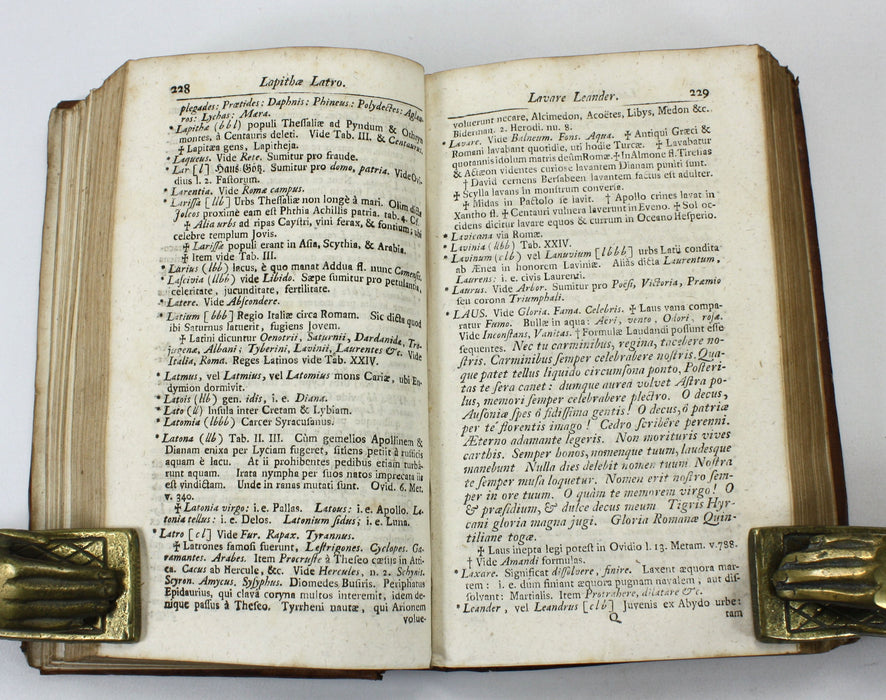 228 Lapithæ Latro.
plegades: Prætides: Daphnis: Phineus: Polydectes: Aglau-
ros: Lychas: Mæra.
*Lapithæ (bbl) populi Thessaliæ ad Pyndum & Othrym
montes, à Centauris deleti. Vide Tab. III. & Centauri.
✠ Lapitæa gens, Lapitheja.
*Laqueus. Vide Rete. Sumitur pro fraude.
*Lar [l] Hauß-Götz. Sumitur pro domo, patria. Vide Ovi-
dius l. 2. Fastorum.
*Larentia. Vide Romæ campus.
*Larissa [llb] Urbs Thessaliæ non longè à mari. Olim dicta
Jolcos proximè eam est Phthia Achillis patria. tab. 4. Cf.
✠ Alia urbs ad ripas Caystri, vini ferax, & fontium; ubi
celebre templum Jovis.
✠ Larissæ populi erant in Asia, Scythia, & Arabia.
✠ Item vide Tab. III.
*Larius (lbb) lacus, è quo manat Addua fl. nunc Comensis.
*Lascivia (llbb) vide Libido. Sæpe sumitur pro petulantia,
celeritate, jucunditate, fertilitate.
*Latere. Vide Abscondere.
*Latium [bbb] Regio Italiæ circa Romam. Sic dicta quod
ibi Saturnus latuerit, fugiens Jovem.
✠ Latini dicuntur Oenotrii, Saturnii, Dardanidæ, Tro-
jugena, Albani; Tyberini, Lavinii, Laurentes &c. Vide
Italia, Roma. Reges Latinos vide Tab. XXIV.
*Latmus, vel Latmius, vel Latomius mons Cariæ, ubi En-
dymion dormivit.
*Latois (llb) gen. idis, i. e. Diana.
*Lato (ll) Insula inter Cretam & Lybiam.
*Latomia (lbbb) Carcer Syracusanus.
*Latona (llb) Tab. II. III. Cùm gemellos Apollinem &
Dianam enixa per Lyciam fugeret, sitiens petiit à rusticis
aquam è lacu. At ii prohibentes pedibus etiam turba-
runt aquam. Irata nympha per suos natos imprecata iis
est vindictam. Unde in ranas mutati sunt. Ovid. 6. Met.
v. 340.
✠ Latonia virgo: i. e. Pallas. Latous: i. e. Apollo. La-
tonia tellus: i. e. Delos. Latonium sidus; i. e. Luna.
*Latro [cl] Vide Fur. Rapax. Tyrannus.
✠ Latrones famosi fuerunt, Lestrigones. Cyclopes. Ga-
ramantes. Arabes. Item Procruste à Theseo cæsus in Atti-
ca. Cacus ab Hercule, &c. Vide Hercules, n. 2. Schynis.
Scyron. Amycus. Sysyphus. Diomedes Busiris. Periphatus
Epidaurius, qui clavâ coryna multos interemit, idem de-
nique passus à Theseo. Tyrrheni nautæ, qui Arionem
volue-
Lavare Leander. 229
voluerunt necare, Alcimedon, Acoëtes, Libys, Medon &c.
Biderman. 2. Herodi. nu. 8.
*Lavare. Vide Balneum. Fons. Aqua. ✠ Antiqui Græci &
Romani lavabant quotidie, uti hodie Turcæ. ✠ Lavabatur
quotannis idolum matris deûm Romæ. ✠ In Almone fl. Tiresias
& Actæon videntes curiose lavantem Dianam puniti sunt.
† David cernens Bersabeen lavantem factus est adulter.
✠ Scylla lavans in monstrum conversa.
✠ Midas in Pactolo se lavit. † Apollo crines lavat in
Xantho fl. ✠ Centauri vulnera laverunt in Eveno. ✠ Sol oc-
cidens dicitur lavare equos & currum in Oceano Hesperio.
*Lavicana via Romæ.
*Lavinia (lbb) Tab. XXIV.
*Lavinum (clb) vel Lanuvium [lbbb] urbs Latii condita
ab Ænea in honorem Laviniæ. Aliàs dicta Laurentum,
Laurens: i. e. civis Laurenti.
*Laurus. Vide Arbor. Sumitur pro Poësi, Victoria, Præmio
seu corona Triumphali.
*LAUS. Vide Gloria. Fama. Celebris. ✠ Laus vana compa-
ratur Fumo. Bullæ in aqua: Aëri, vento, Odori, rosæ.
Vide Inconstans, Vanitas. † Formulæ Laudandi possunt esse
sequentes. Nec tu carminibus, regina, tacebere no-
stris. Carminibus semper celebrabere nostris. Qua-
que patet tellus liquido circumsona ponto, Posteri-
tas te sera canet: dumque aurea volvet Astra po-
lus, memori semper celebrabere plectro. O decus,
Ausoniæ spes ô fidissima gentis! O decus, ô patriæ
per te florentis imago! Cedro scribêre perenni.
Æterno adamante legeris. Non morituris vives
carthis. Semper honos, nomenque tuum, laudesque
manebunt Nulla dies delebit nomen tuum Nostra
te semper musa loquetur. Nomen erit nostro sem-
per in ore tuum. O quàm te memorem virgo! O
& præsidium, & dulce decus meum Tigris Hyr-
cani gloria magna jugi. Gloria Romanæ Quin-
tiliane togæ.
✠ Laus inepta legi potest in Ovidio l. 13. Metam. v. 788.
† Vide Amandi formulas.
*Laxare. Significat dissolvere, finire. Laxent æquora mar-
tem: i. e. dum finiant æquora pugnam navalem, aut dis-
solvant: Martialis. Item Protrahere, dilatare &c.
*Leander, vel Leandrus [clb] Juvenis ex Abydo urbe:
Q tam